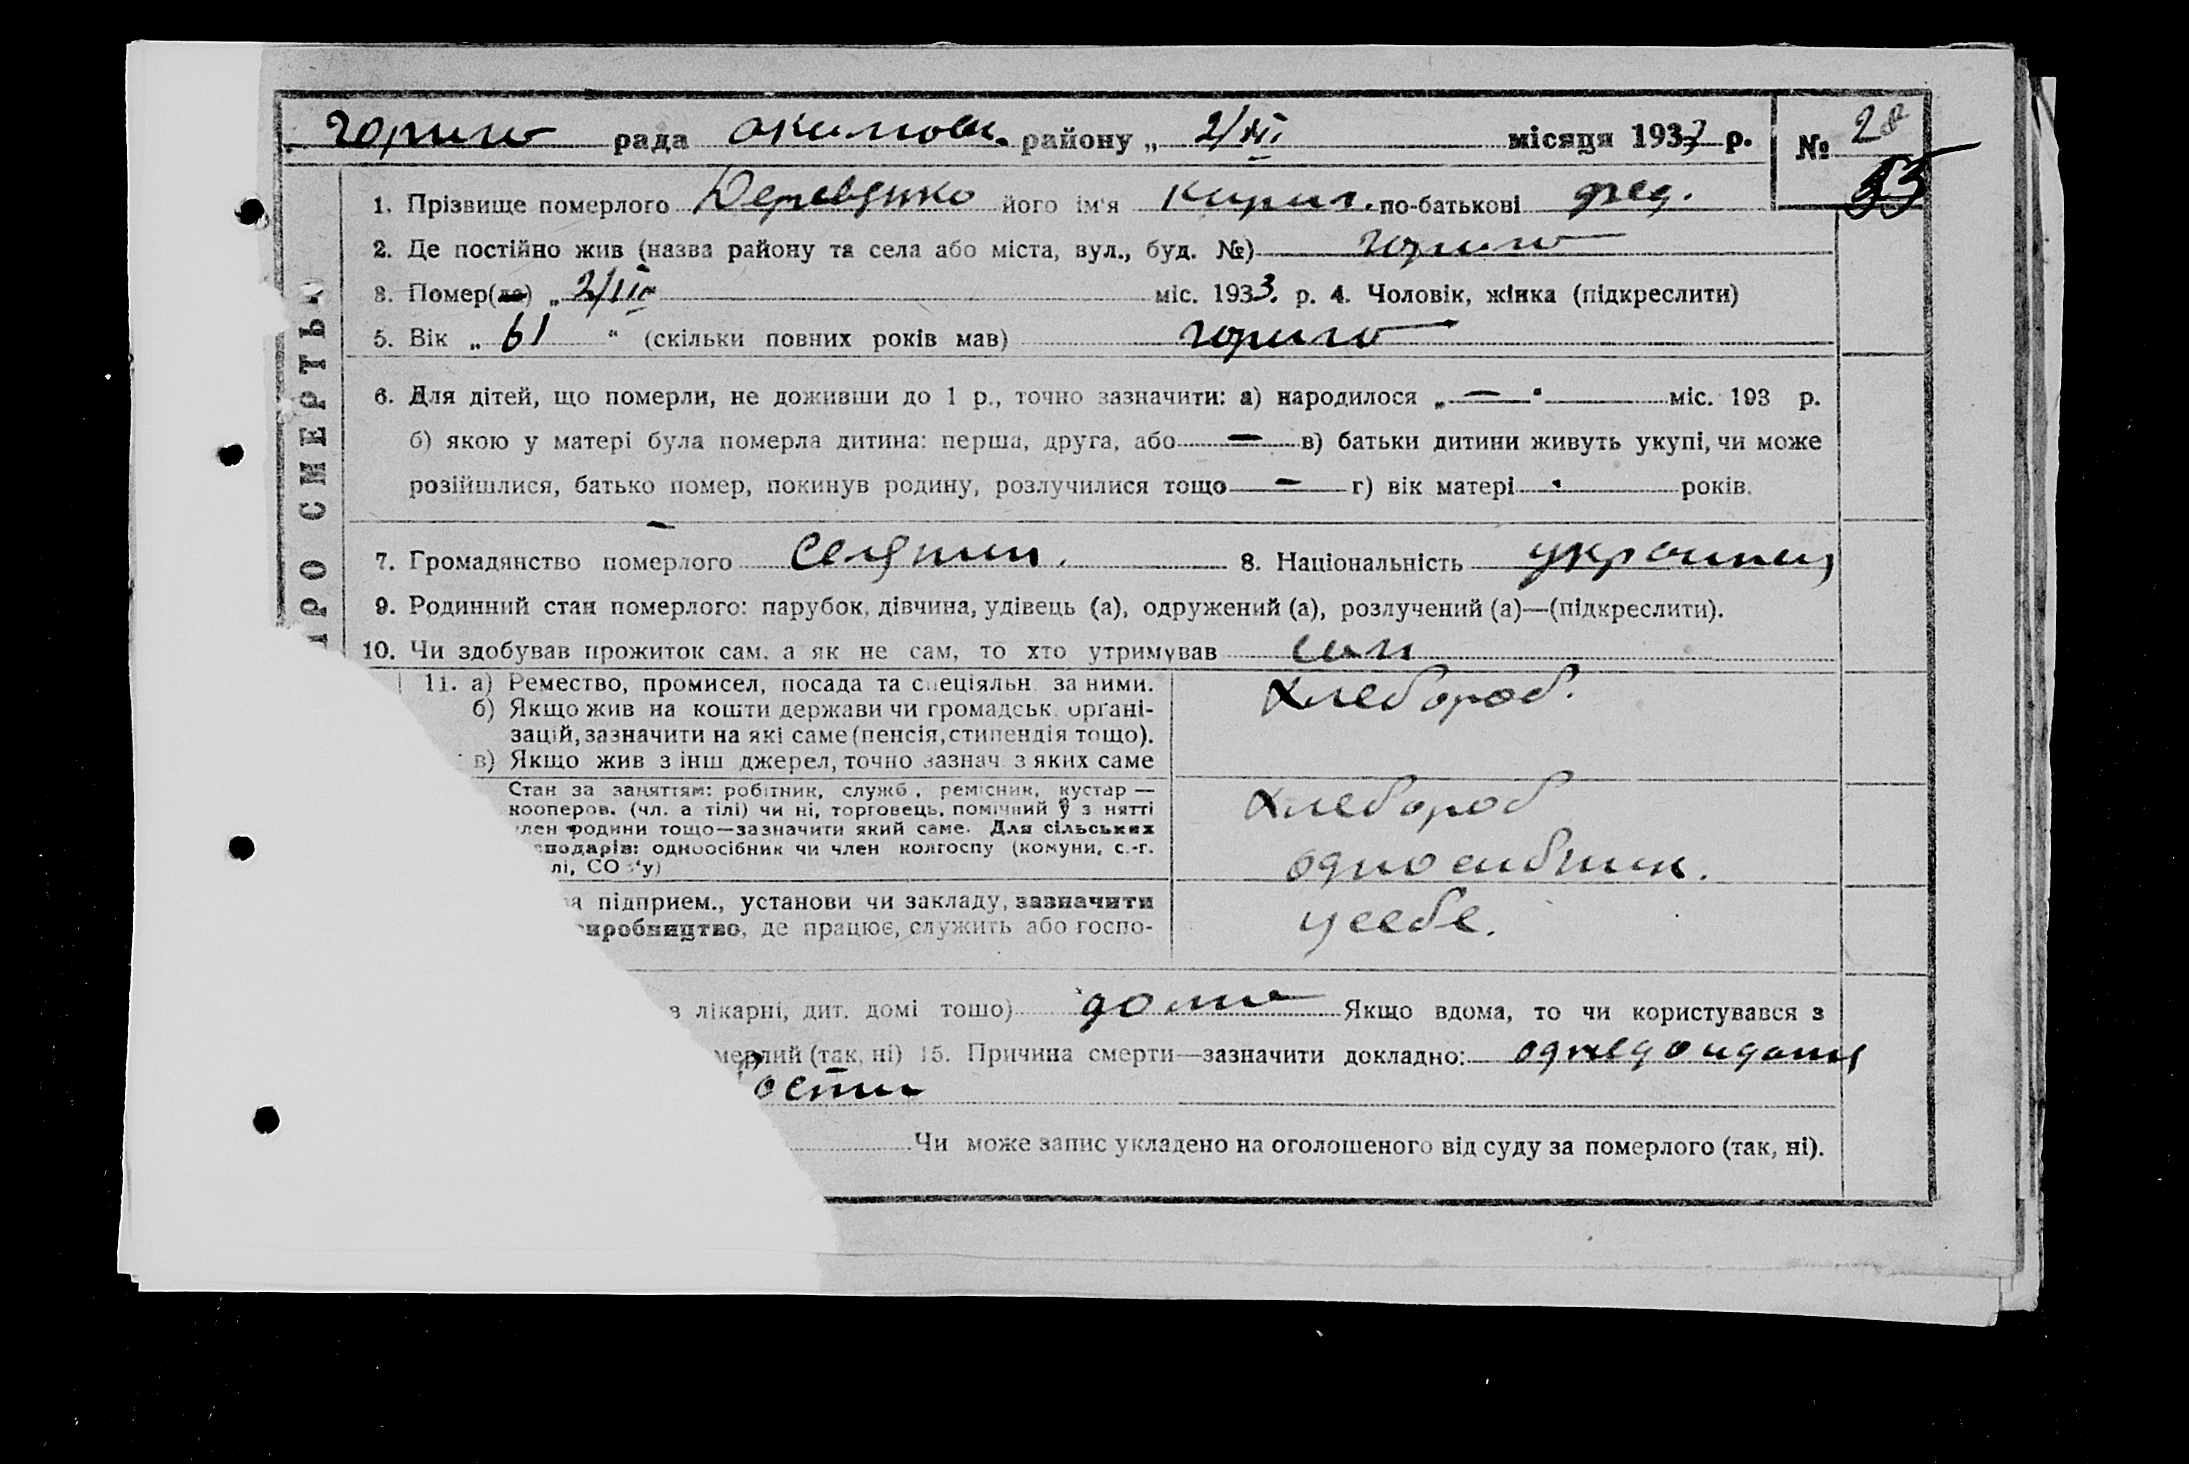 рада район​у „ 2/III місяця 1933 р. № 28
35
1. Прізвище померлого Деревянко його ім'я Кирил. по-батькові Фед.
2. Де постійно жив (назва району та села або міста, вул., буд. №)
3. Помер(ла) „ 2/III міс. 1933. р. 4. Чоловік, жінка (підкреслити)
5. Вік „ 61 “ (скільки повних років мав)
6. Для дітей, що померли, не доживши до 1 р., точно зазначити: а) народилося „ — “ міс. 193 р.
б) якою у матері була померла дитина: перша, друга, або — в) батьки дитини живуть укупі, чи може
розійшлися, батько помер, покинув родину, розлучилися тощо — г) вік матері - років.
7. Громадянство померлого Селянин. 8. Національність украинец
9. Родинний стан померлого: парубок, дівчина, удівець (а), одружений (а), розлучений (а)—(підкреслити).
10. Чи здобував прожиток сам, а як не сам, то хто утримував сам
11. а) Ремество, промисел, посада та спеціяльн за ними. Хлебороб.
б) Якщо жив на кошти держави чи громадськ. органі-
зацій, зазначити на які саме (пенсія, стипендія тощо).
в) Якщо жив з інш джерел, точно зазнач з яких саме
Стан за заняттям: робітник, служб., ремісник, кустар — Хлебороб
кооперов. (чл. а тілі) чи ні, торговець, помічний у з нятті
лен родини тощо—зазначити який саме. Для сільських
сподарів: одноосібник чи член колгоспу (комуни, с.-г. односибник.
лі, СО З'у)
я підприєм., установи чи закладу, зазначити у себе.
иробництво, де працює, служить або госпо-
в лікарні, дит. домі тощо) дома Якщо вдома, то чи користувався з
мерлий (так, ні) 15. Причина смерти—зазначити докладно: од недоидания
ости
Чи може запис укладено на оголошеного від суду за померлого (так, ні).
ПРО СМЕРТЬ